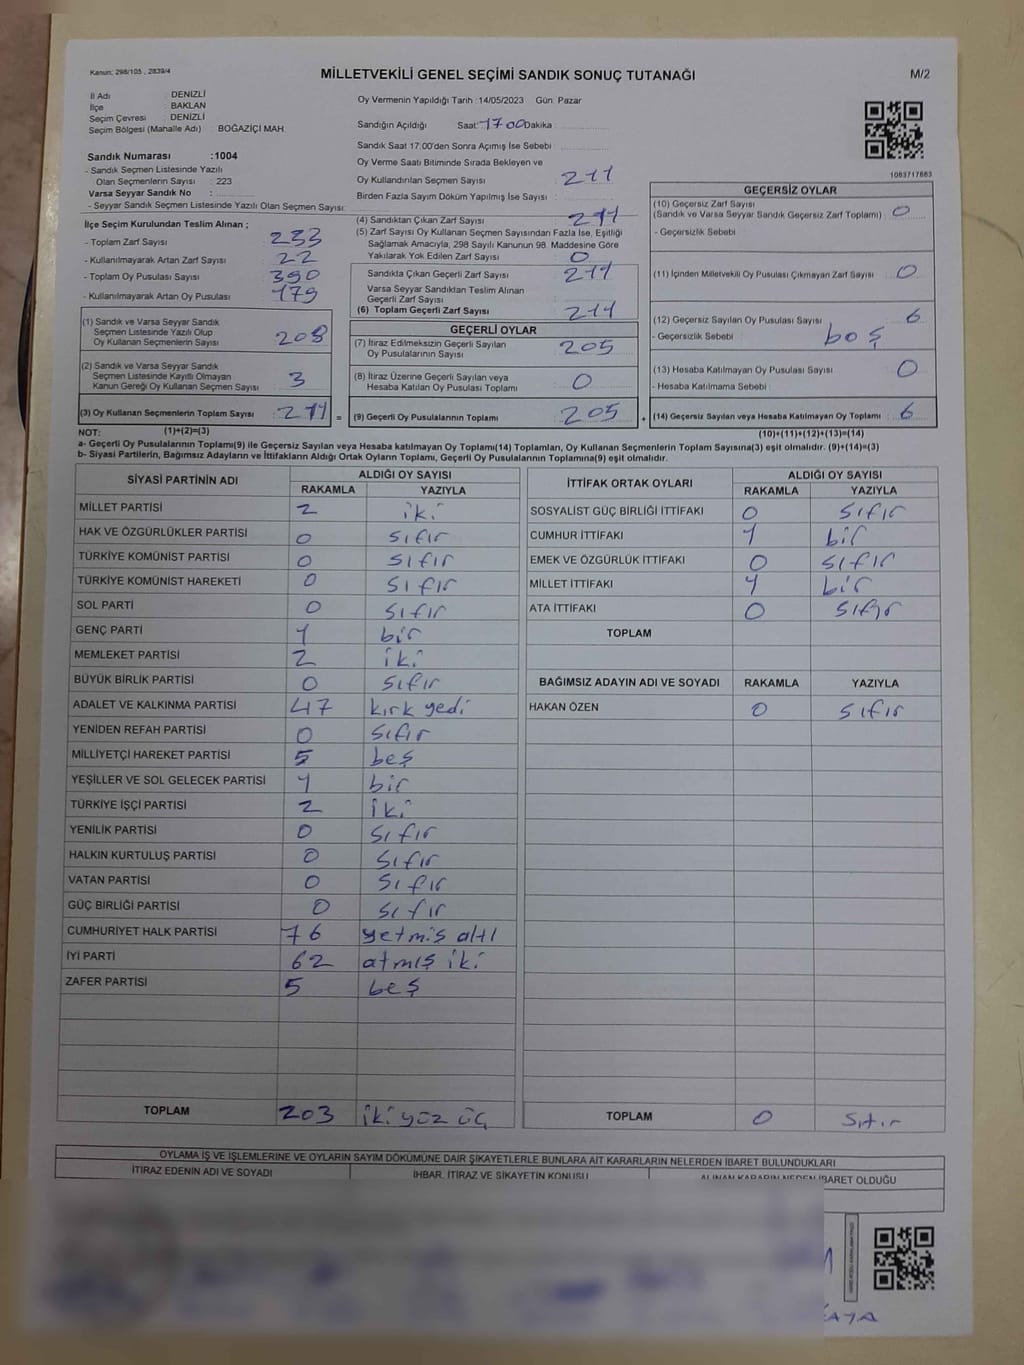 Kanun: 298/105 , 2839/4
MİLLETVEKİLİ GENEL SEÇİMİ SANDIK SONUÇ TUTANAĞI
M/2
İl Adı : DENİZLİ
İlçe : BAKLAN
Seçim Çevresi : DENİZLİ
Seçim Bölgesi (Mahalle Adı) : BOĞAZİÇİ MAH.
Sandık Numarası :1004
- Sandık Seçmen Listesinde Yazılı
Olan Seçmenlerin Sayısı : 223
Varsa Seyyar Sandık No :
- Seyyar Sandık Seçmen Listesinde Yazılı Olan Seçmen Sayısı:
Oy Vermenin Yapıldığı Tarih :14/05/2023 Gün: Pazar
Sandığın Açıldığı Saat: 17 00 Dakika :
Sandık Saat 17:00'den Sonra Açımış İse Sebebi :
Oy Verme Saati Bitiminde Sırada Bekleyen ve
Oy Kullandırılan Seçmen Sayısı : 211
Birden Fazla Sayım Döküm Yapılmış İse Sayısı :
1083717883
İlçe Seçim Kurulundan Teslim Alınan ;
- Toplam Zarf Sayısı : 233
- Kullanılmayarak Artan Zarf Sayısı : 22
- Toplam Oy Pusulası Sayısı : 390
- Kullanılmayarak Artan Oy Pusulası : 179
(1) Sandık ve Varsa Seyyar Sandık
Seçmen Listesinde Yazılı Olup
Oy Kullanan Seçmenlerin Sayısı : 208
(2) Sandık ve Varsa Seyyar Sandık
Seçmen Listesinde Kayıtlı Olmayan
Kanun Gereği Oy Kullanan Seçmen Sayısı : 3
(3) Oy Kullanan Seçmenlerin Toplam Sayısı : 211 =
(4) Sandıktan Çıkan Zarf Sayısı : 211
(5) Zarf Sayısı Oy Kullanan Seçmen Sayısından Fazla İse, Eşitliği
Sağlamak Amacıyla, 298 Sayılı Kanunun 98. Maddesine Göre
Yakılarak Yok Edilen Zarf Sayısı : 0
Sandıkla Çıkan Geçerli Zarf Sayısı : 211
Varsa Seyyar Sandıktan Teslim Alınan
Geçerli Zarf Sayısı :
(6) Toplam Geçerli Zarf Sayısı : 211
GEÇERLİ OYLAR
(7) İtiraz Edilmeksizin Geçerli Sayılan
Oy Pusulalarının Sayısı : 205
(8) İtiraz Üzerine Geçerli Sayılan veya
Hesaba Katılan Oy Pusulası Toplamı : 0
(9) Geçerli Oy Pusulalarının Toplamı : 205 +
GEÇERSİZ OYLAR
(10) Geçersiz Zarf Sayısı
(Sandık ve Varsa Seyyar Sandık Geçersiz Zarf Toplamı) : 0
- Geçersizlik Sebebi :
(11) İçinden Milletvekili Oy Pusulası Çıkmayan Zarf Sayısı : 0
(12) Geçersiz Sayılan Oy Pusulası Sayısı : 6
- Geçersizlik Sebebi : boş
(13) Hesaba Katılmayan Oy Pusulası Sayısı : 0
- Hesaba Katılmama Sebebi :
(14) Geçersiz Sayılan veya Hesaba Katılmayan Oy Toplamı : 6
NOT: (1)+(2)=(3) (10)+(11)+(12)+(13)=(14)
a- Geçerli Oy Pusulalarının Toplamı(9) ile Geçersiz Sayılan veya Hesaba katılmayan Oy Toplamı(14) Toplamları, Oy Kullanan Seçmenlerin Toplam Sayısına(3) eşit olmalıdır. (9)+(14)=(3)
b- Siyasi Partilerin, Bağımsız Adayların ve İttifakların Aldığı Ortak Oyların Toplamı, Geçerli Oy Pusulalarının Toplamına(9) eşit olmalıdır.
SİYASİ PARTİNİN ADI ALDIĞI OY SAYISI
RAKAMLA YAZIYLA
MİLLET PARTİSİ 2 iki
HAK VE ÖZGÜRLÜKLER PARTİSİ 0 sıfır
TÜRKİYE KOMÜNİST PARTİSİ 0 sıfır
TÜRKİYE KOMÜNİST HAREKETİ 0 sıfır
SOL PARTİ 0 sıfır
GENÇ PARTİ 1 bir
MEMLEKET PARTİSİ 2 iki
BÜYÜK BİRLİK PARTİSİ 0 sıfır
ADALET VE KALKINMA PARTİSİ 47 kırk yedi
YENİDEN REFAH PARTİSİ 0 sıfır
MİLLİYETÇİ HAREKET PARTİSİ 5 beş
YEŞİLLER VE SOL GELECEK PARTİSİ 1 bir
TÜRKİYE İŞÇİ PARTİSİ 2 iki
YENİLİK PARTİSİ 0 sıfır
HALKIN KURTULUŞ PARTİSİ 0 sıfır
VATAN PARTİSİ 0 sıfır
GÜÇ BİRLİĞİ PARTİSİ 0 sıfır
CUMHURİYET HALK PARTİSİ 76 yetmiş altı
İYİ PARTİ 62 atmış iki
ZAFER PARTİSİ 5 beş
TOPLAM 203 iki yüz üç
İTTİFAK ORTAK OYLARI ALDIĞI OY SAYISI
RAKAMLA YAZIYLA
SOSYALİST GÜÇ BİRLİĞİ İTTİFAKI 0 sıfır
CUMHUR İTTİFAKI 1 bir
EMEK VE ÖZGÜRLÜK İTTİFAKI 0 sıfır
MİLLET İTTİFAKI 1 bir
ATA İTTİFAKI 0 sıfır
TOPLAM
BAĞIMSIZ ADAYIN ADI VE SOYADI RAKAMLA YAZIYLA
HAKAN ÖZEN 0 sıfır
TOPLAM 0 sıfır
OYLAMA İŞ VE İŞLEMLERİNE VE OYLARIN SAYIM DÖKÜMÜNE DAİR ŞİKAYETLERLE BUNLARA AİT KARARLARIN NELERDEN İBARET BULUNDUKLARI
İTİRAZ EDENİN ADI VE SOYADI İHBAR, İTİRAZ VE ŞİKAYETİN KONUSU ALINAN KARARIN NEDEN İBARET OLDUĞU